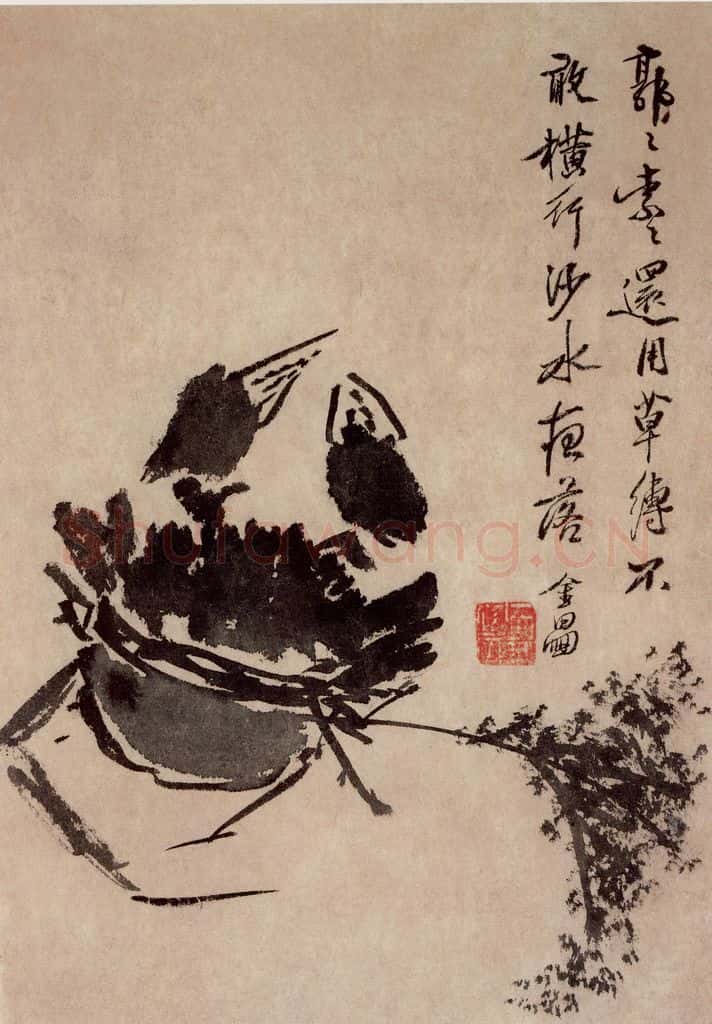 郭〻索〻還用草縛不
敢橫行沙水落
金
Shufawang.CN